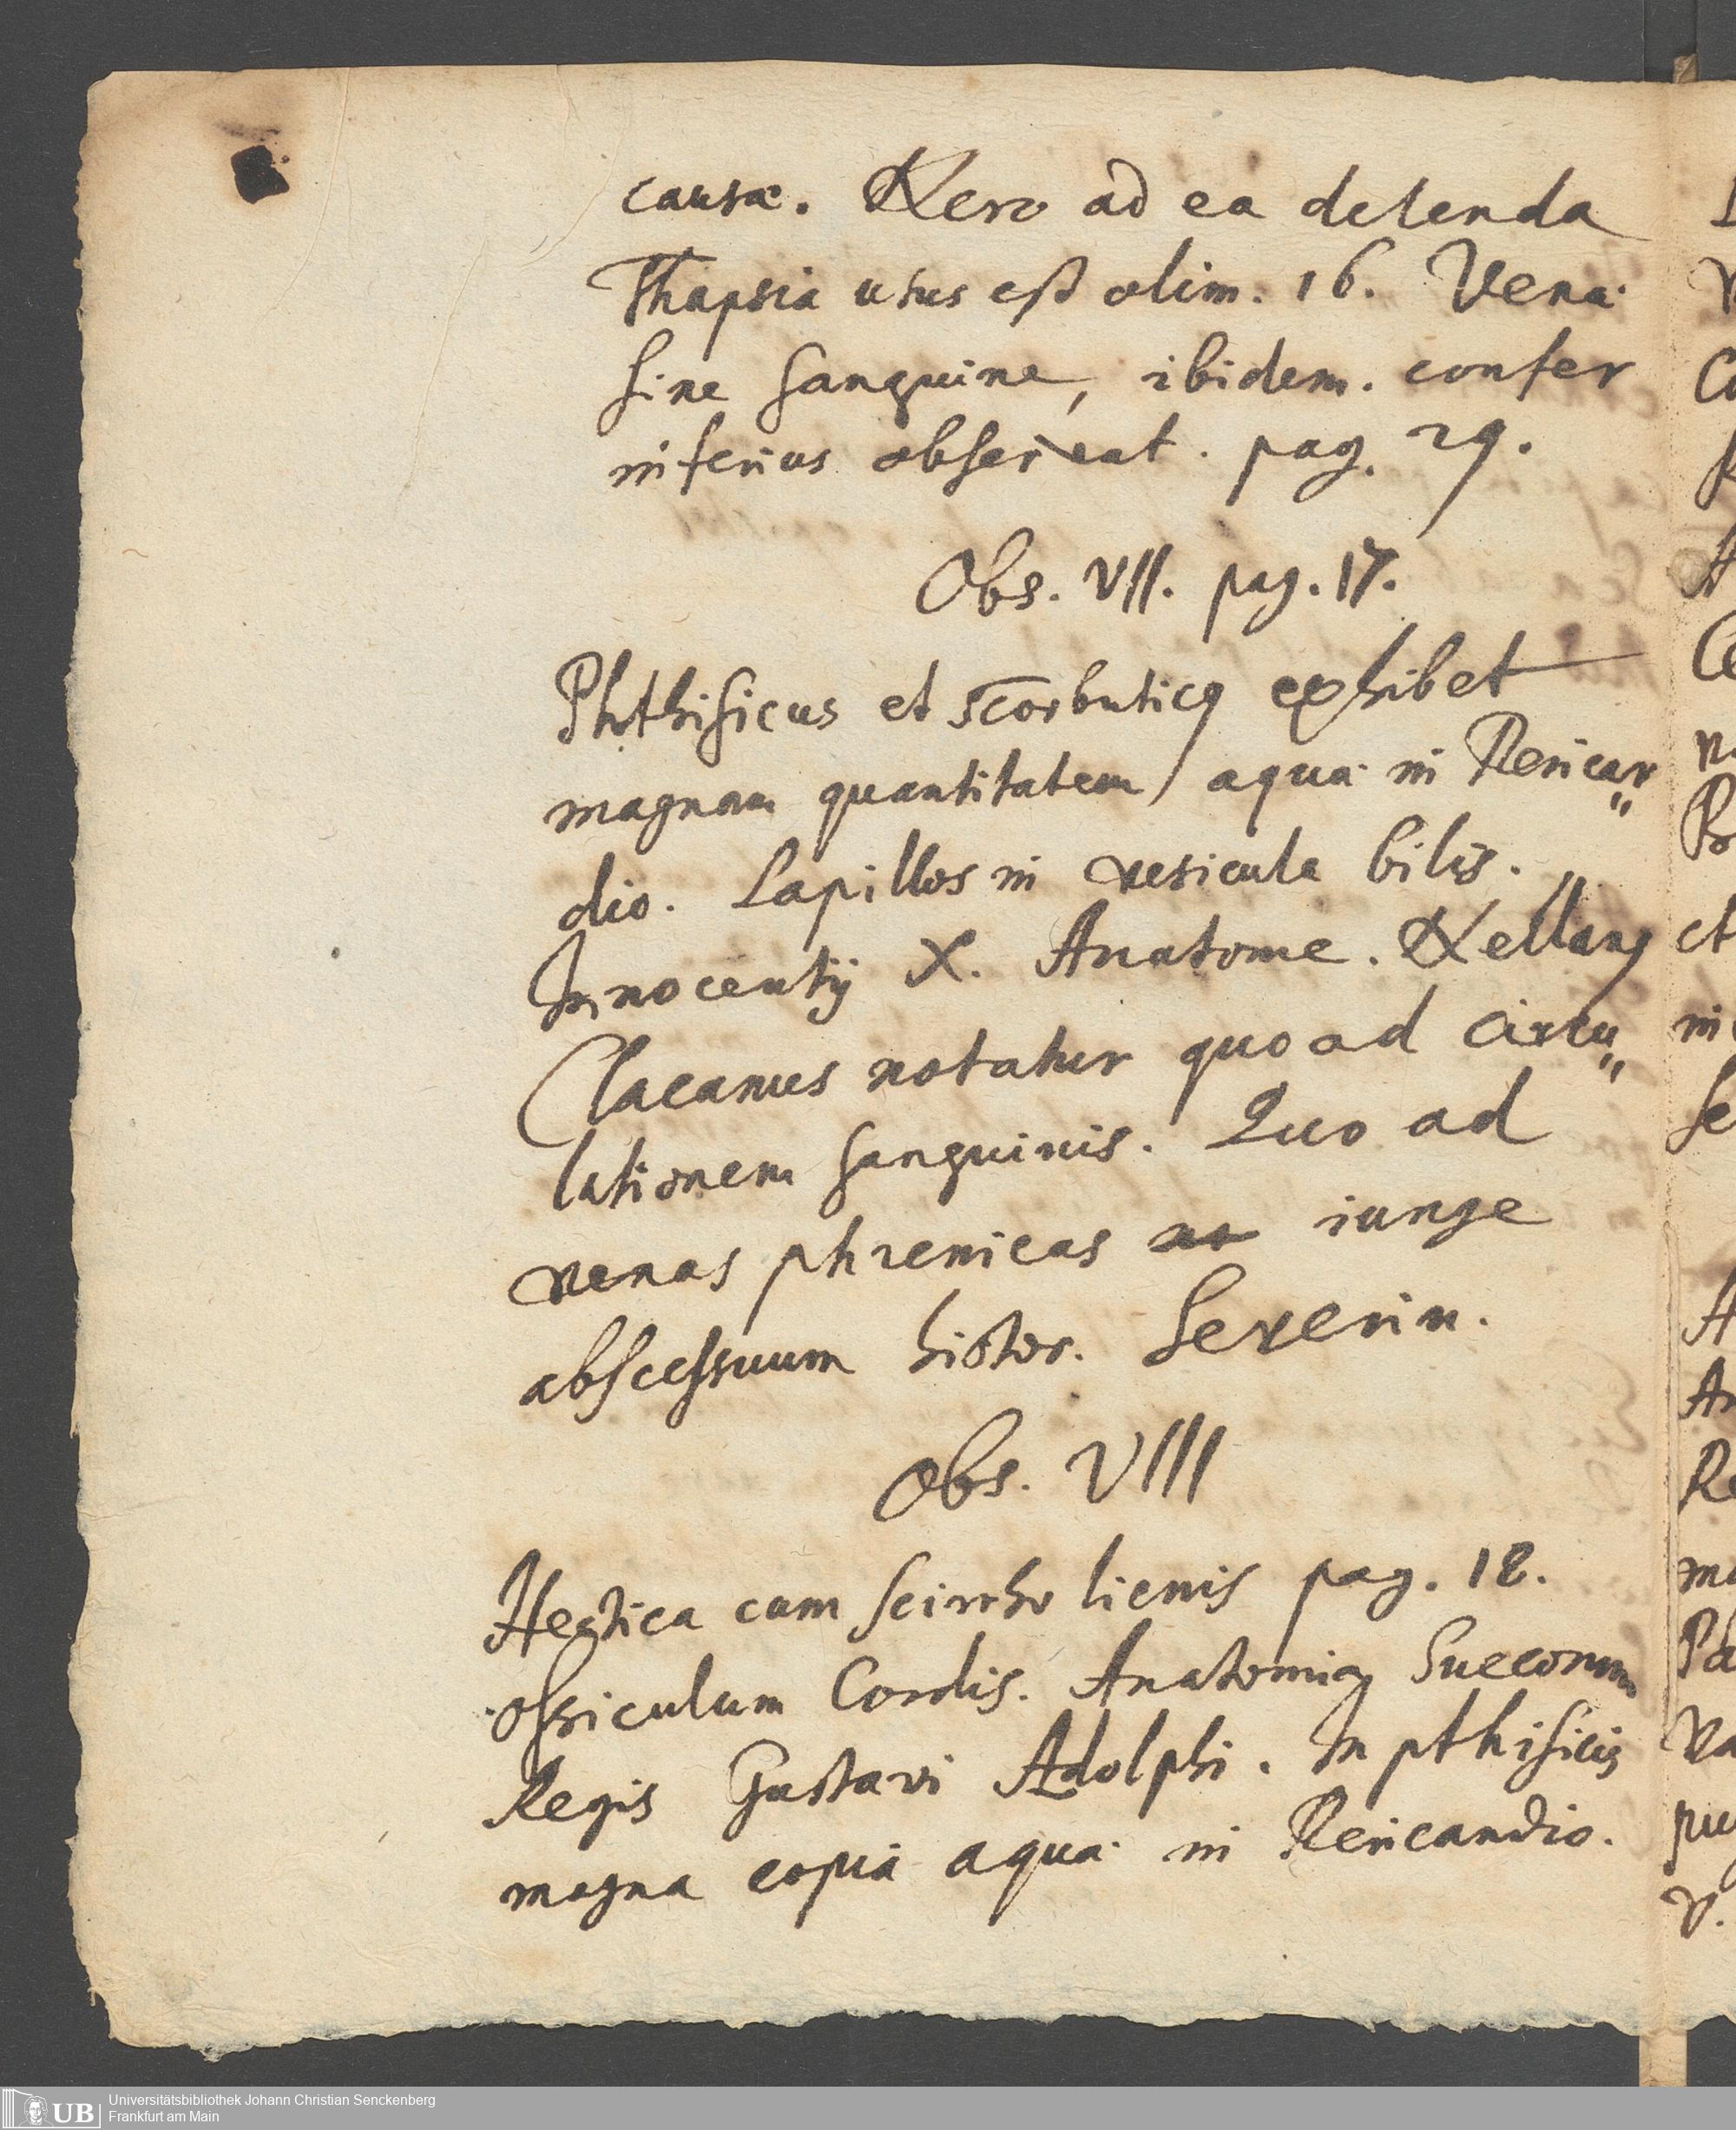 causæ. Nero ad ea delenda
Thapsia usus est olim. 16. Vena
sine sanguine, ibidem. confer
inferius observat. pag. 29.
Obs. VII. pag. 17.
Phthisicus et scorbuticq exhibet
magnam quantitatem aqua in Pericar„
dio. Lapillos in vesicula bilis.
Innocentij X. Anatome.
notatur quo ad circu„
lationem sanguinis. Quo ad
venas phrenicas iunge
abscessuum histor. Severin.
Obs. VIII
Hectica cum scirrho lienis pag. 18.
ossiculum Cordis. Anatomia Suecorum
Regis Gustavi Adolphi. In pthisicis
magna copia aqua in Pericardio.
UB
Universitätsbibliothek Johann Christian Senckenberg
Frankfurt am Main